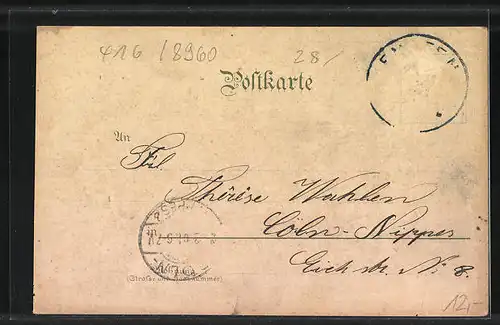 416 / 8960
28/
Postkarte
An
Frl.
Thérèse Wahlen
Cöln-Nippes
Eich str. N. 8.
(Straße und Hausnummer)
12,-